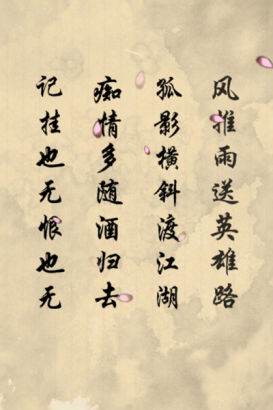 风推雨送英雄路
孤影横斜渡江湖
痴情多随酒归去
记挂也无恨也无